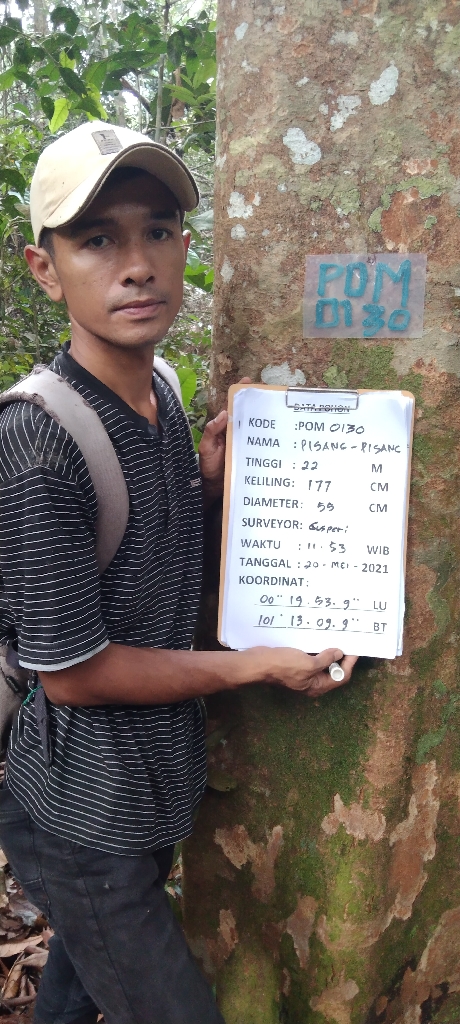 POM
0130
DATA POHON
KODE :POM 0130
NAMA : PISANG-PISANG
TINGGI : 22 M
KELILING: 177 CM
DIAMETER: 55 CM
SURVEYOR: Gusperi
WAKTU : 11.53 WIB
TANGGAL : 20-MEI-2021
KOORDINAT:
00° 19.53.9" LU
101° 13.09.9" BT